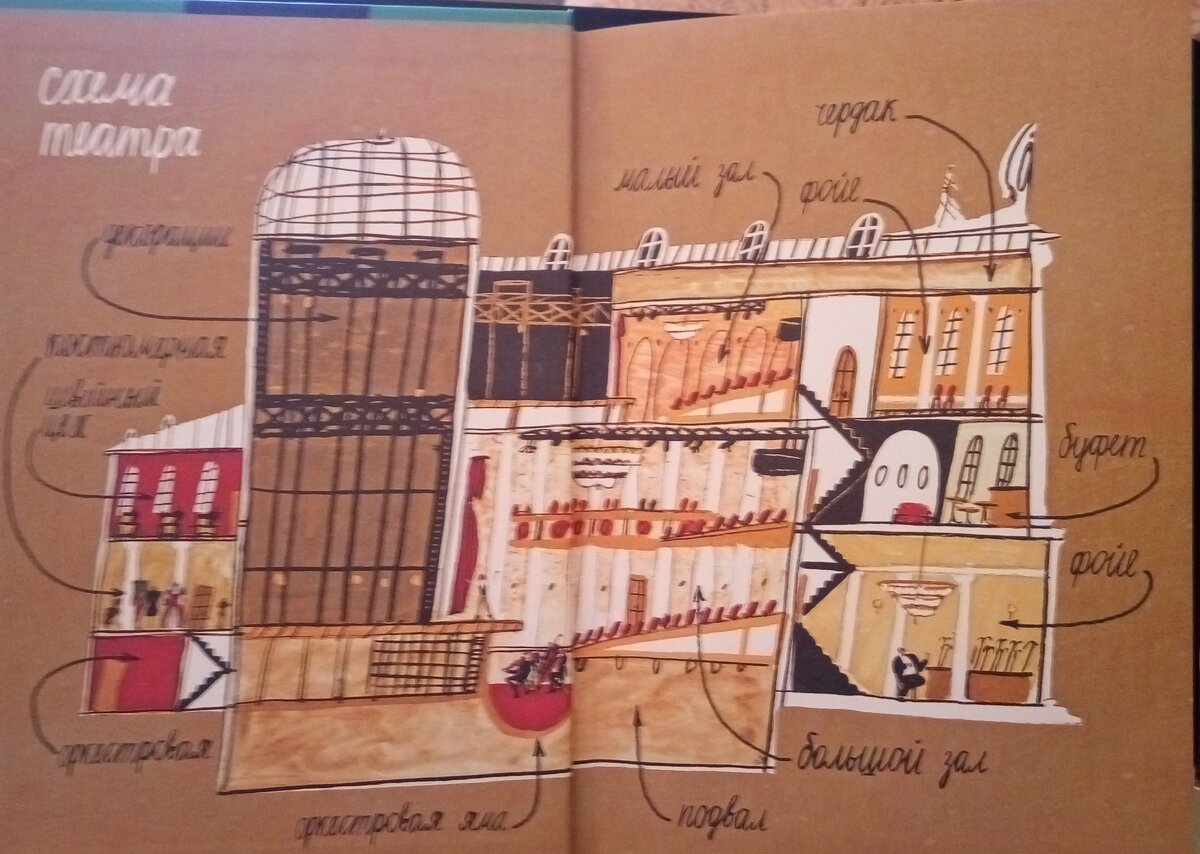 схема
театра
чердак
малый зал
фойе
декорации
костюмерная
швейный
цех
буфет
фойе
оркестровая
большой зал
оркестровая яма
подвал